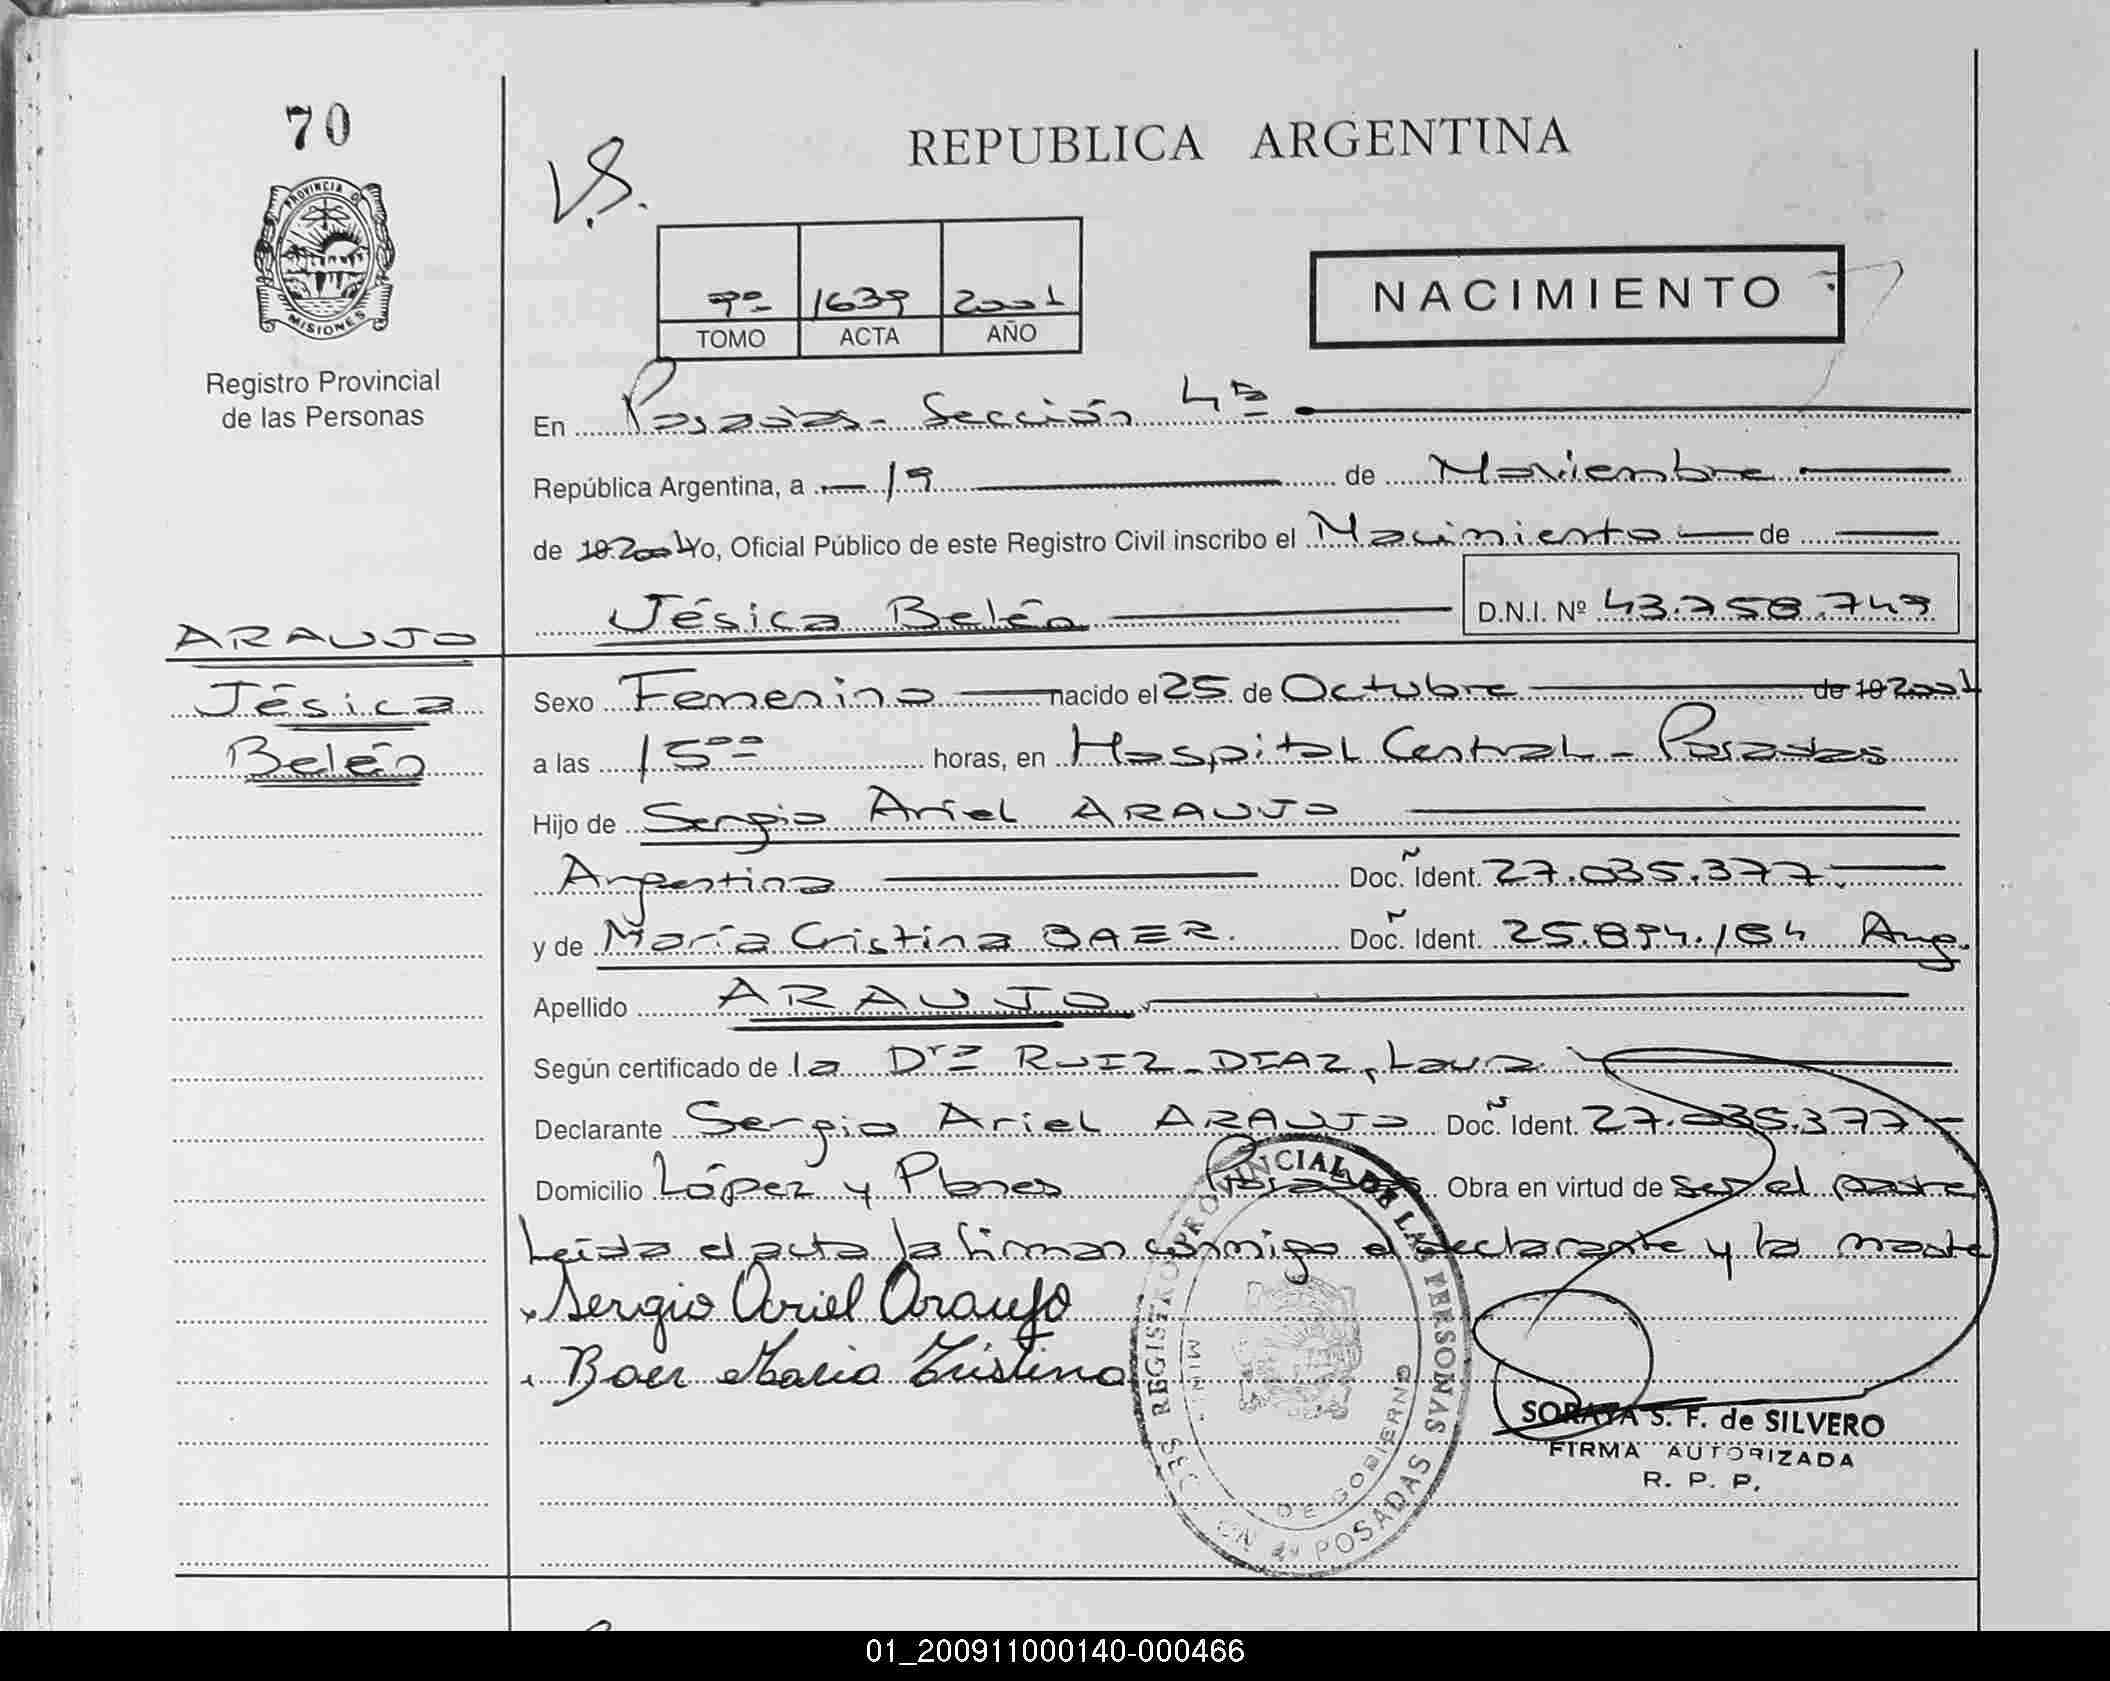 70
PROVINCIA DE
MISIONES
Registro Provincial
de las Personas
V.S.
REPUBLICA ARGENTINA
9º 1639 2001
TOMO ACTA AÑO
NACIMIENTO
En Posadas - Sección 4ª
República Argentina, a 19 de Noviembre
de 19 2001 Yo, Oficial Público de este Registro Civil inscribo el Nacimiento de
Jésica Belén D.N.I. Nº 43.758.749
ARAUJO
Jésica
Belén
Sexo Femenino nacido el 25 de Octubre de 19 2001
a las 15ºº horas, en Hospital Central - Posadas
Hijo de Sergio Ariel ARAUJO
Argentina Doc. Ident. 27.035.377.
y de María Cristina BAER. Doc. Ident. 25.894.184 Arg.
Apellido ARAUJO
Según certificado de la Drª RUIZ-DIAZ, Laura
Declarante Sergio Ariel ARAUJO Doc. Ident. 27.035.377
Domicilio López y Planes Posadas Obra en virtud de ser el padre
Leída el acta la firman conmigo el declarante y la madre
Sergio Ariel Araujo
Baer Maria Cristina
REGISTRO PROVINCIAL DE LAS PERSONAS
DE GOBIERNO
POSADAS
SORAYA S. F. de SILVERO
FIRMA AUTORIZADA
R. P. P.
01_200911000140-000466